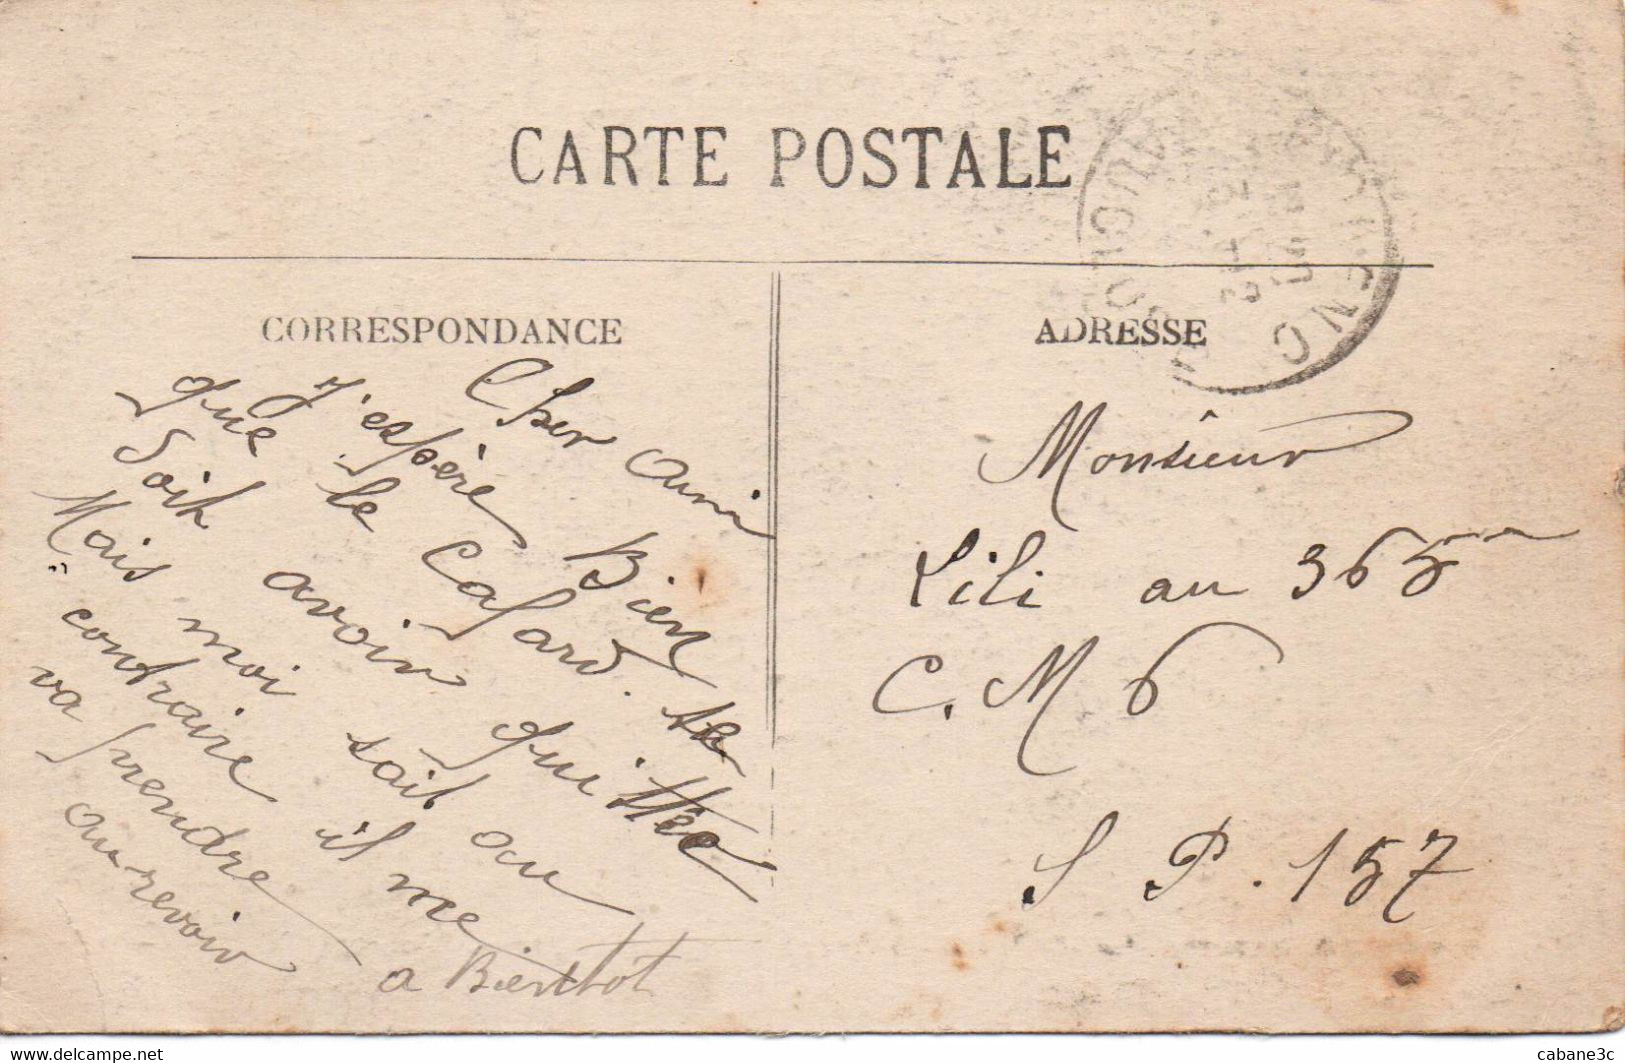 CARTE POSTALE
CORRESPONDANCE
Cher ami
J'espère Bien
que le Cafard te
Soit avoir quittée
Mais moi sait au
contraire il me
va prendre
au revoir
a Bientot
ADRESSE
Monsieur
Lili au 365e
C. M 6
S P. 157
cabane3c
www.delcampe.net